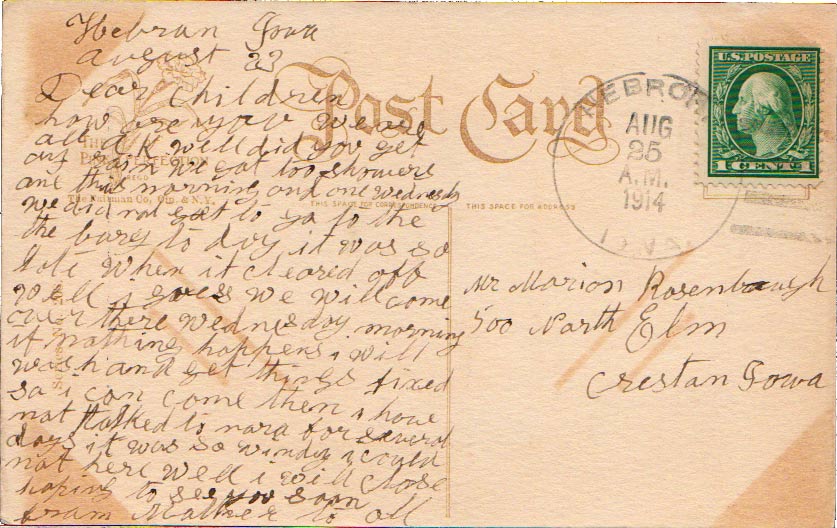 Hebran Iowa
August 23
Dear Children
how are you we are
all O K well did you get
any rain we got too showers
one this morning and one wednesday
we did not get to go to the
the burg to day it was so
late when it cleared off
well i guess we will come
over there wednesday morning
if nothing happens i will
wash and get things fixed
so i can come then i have
not talked to nora for several
days it was so windy i could
not here well i will close
hoping to see you soon
from Mother to all
Post Card
THIS SPACE FOR CORRESPONDENCE
THIS SPACE FOR ADDRESS
The Rullman Co., Cin. & N.Y.
HEBRON
AUG
25
A.M.
1914
IOWA
U.S. POSTAGE
1 CENT 1
Mr Marion Rosenbaugh
500 North Elm
Crestan Iowa